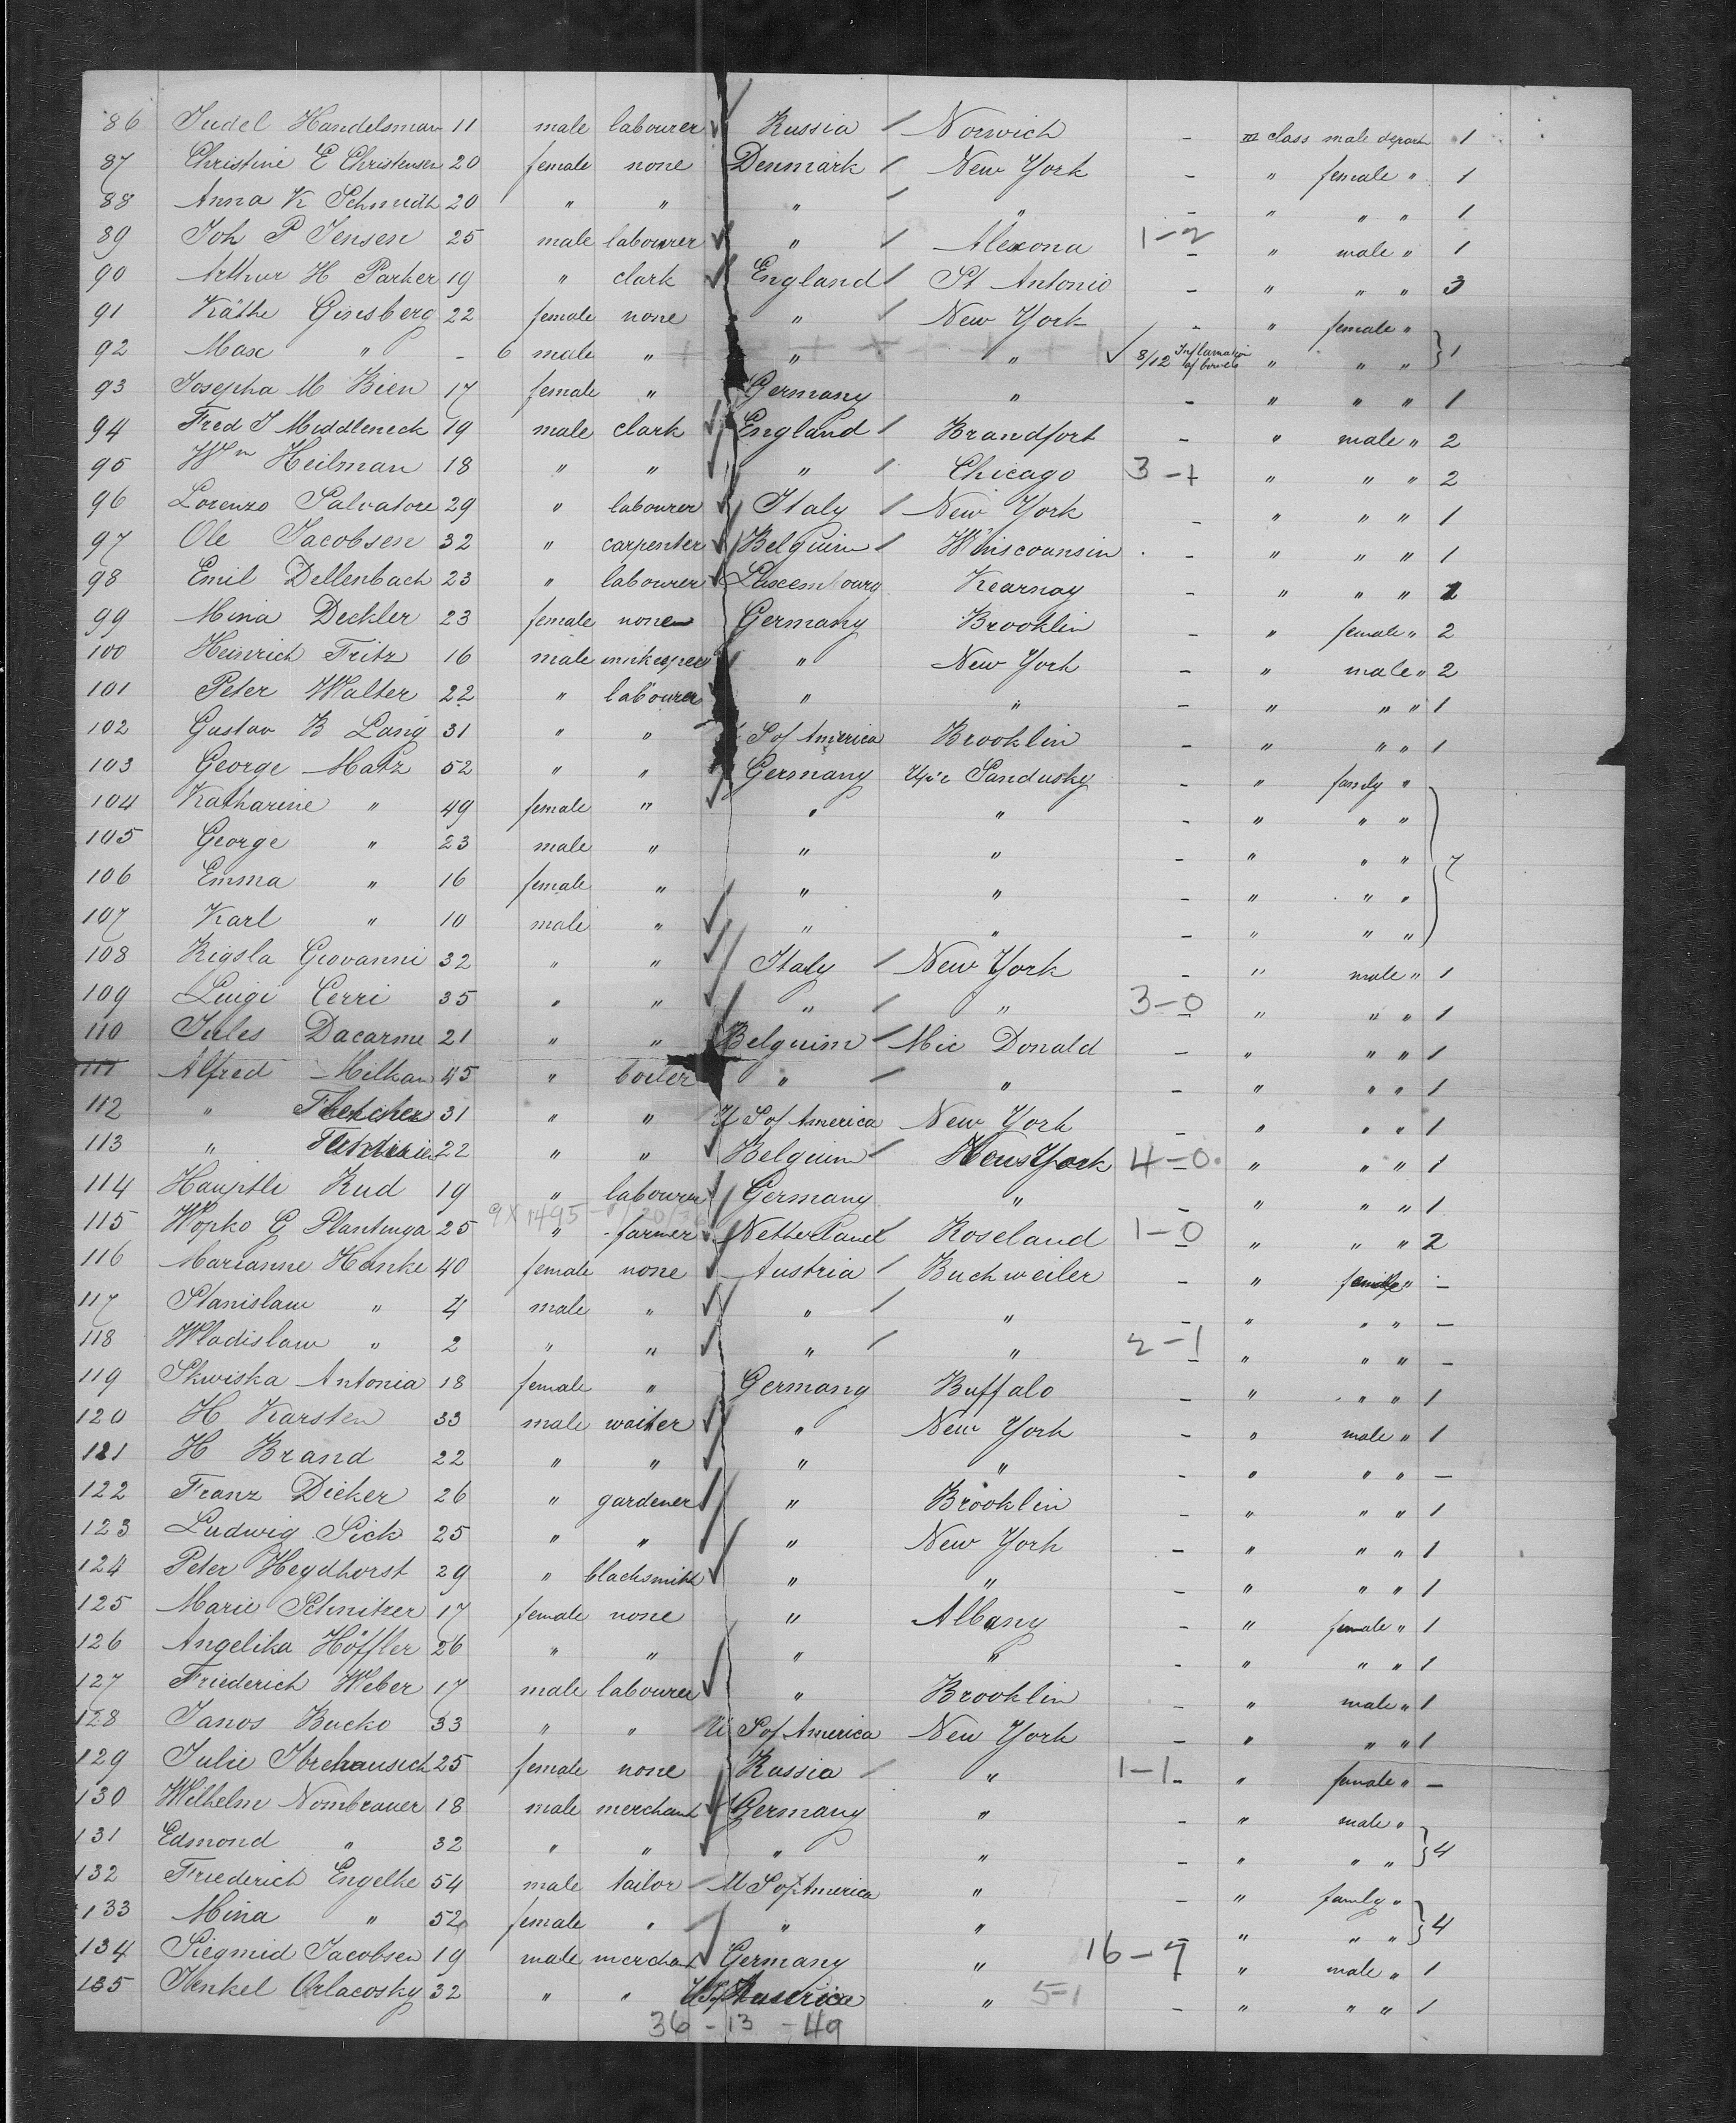 86 Judel Handelsman 11 male labourer Russia Norwich - III class male depart 1
87 Christine E Christensen 20 female none Denmark New York - " female " 1
88 Anna K Schmidt 20 " " " " - " " " 1
89 Joh P Jensen 25 male labourer " Alexona 1-2 - " male " 1
90 Arthur H Parker 19 " clark England St Antonio - " " " 3
91 Käthe Ginsberg 22 female none " New York - " female "
92 Max " - 6 male " " " 8/12 Inflamation of bowels " " " } 1
93 Josepha M Bien 17 female " Germany " - " " " 1
94 Fred J Middleneck 19 male clark England Brandfort - " male " 2
95 Wm Heilman 18 " " " Chicago 3-1 " " " 2
96 Lorenzo Salvatore 29 " labourer Italy New York - " " " 1
97 Ole Jacobsen 32 " carpenter Belguim Winscounsin - " " " 1
98 Emil Dellenbach 23 " labourer Luxembourg Kearnay - " " " 1
99 Mina Deckler 23 female none Germany Brooklin - " female " 2
100 Heinrich Fritz 16 male " New York - " male " 2
101 Peter Walter 22 " labourer " " - " " " 1
102 Gustav B Lang 31 " " S of America Brooklin - " " " 1
103 George Matz 52 " " Germany Upr Sandusky - " family "
104 Katharine " 49 female " " " - " " "
105 George " 23 male " " " - " " " } 7
106 Emma " 16 female " " " - " " "
107 Karl " 10 male " " " - " " "
108 Rigsla Giovanni 32 " " Italy New York - " male " 1
109 Luigi Cerri 35 " " " " 3-0 - " " " 1
110 Jules Dacarme 21 " " Belguim Mic Donald - " " " 1
111 Alfred Milkan 45 " boiler " " - " " " 1
112 " Fletcher 31 " " U S of America New York - " " " 1
113 " 22 " " Belguim New York 4-0 - " " " 1
114 Hauptli Rud 19 " labourer Germany " - " " " 1
9X1495
115 Wopko G Plantinga 25 " farmer Netherland Roseland 1-0 - " " " 2
116 Marianne Hanke 40 female none Austria Buchweiler - " female " -
117 Stanislaw " 4 male " " " - " " " -
118 Wladislaw " 2 " " " " 2-1 - " " " -
119 Skwiska Antonia 18 female " Germany Buffalo - " " " 1
120 H Karsten 33 male waiter " New York - " male " 1
121 H Brand 22 " " " " - " " " -
122 Franz Dicker 26 " gardener " Brooklin - " " " 1
123 Ludwig Sick 25 " " " New York - " " " 1
124 Peter Heydhorst 29 " blacksmith " " - " " " 1
125 Marie Schnitzer 17 female none " Albany - " female " 1
126 Angelika Höffler 26 " " " " - " " " 1
127 Friederich Weber 17 male labourer " Brooklin - " male " 1
128 Janos Bucko 33 " " U S of America New York - " " " 1
129 Julie 25 female none Russia " 1-1 - " female " -
130 Wilhelm Nombrauer 18 male merchant Germany " - " male "
131 Edmond " 32 " " " " - " " " } 4
132 Friederich Engelke 54 male tailor U S of America " - " family "
133 Mina " 52 female " " " " " " } 4
134 Siegmid Jacobsen 19 male merchant Germany " 16-9 " male " 1
135 Jenkel Orlacosky 32 " " U S of America " 5-1 - " " " 1
36 - 13 - 49